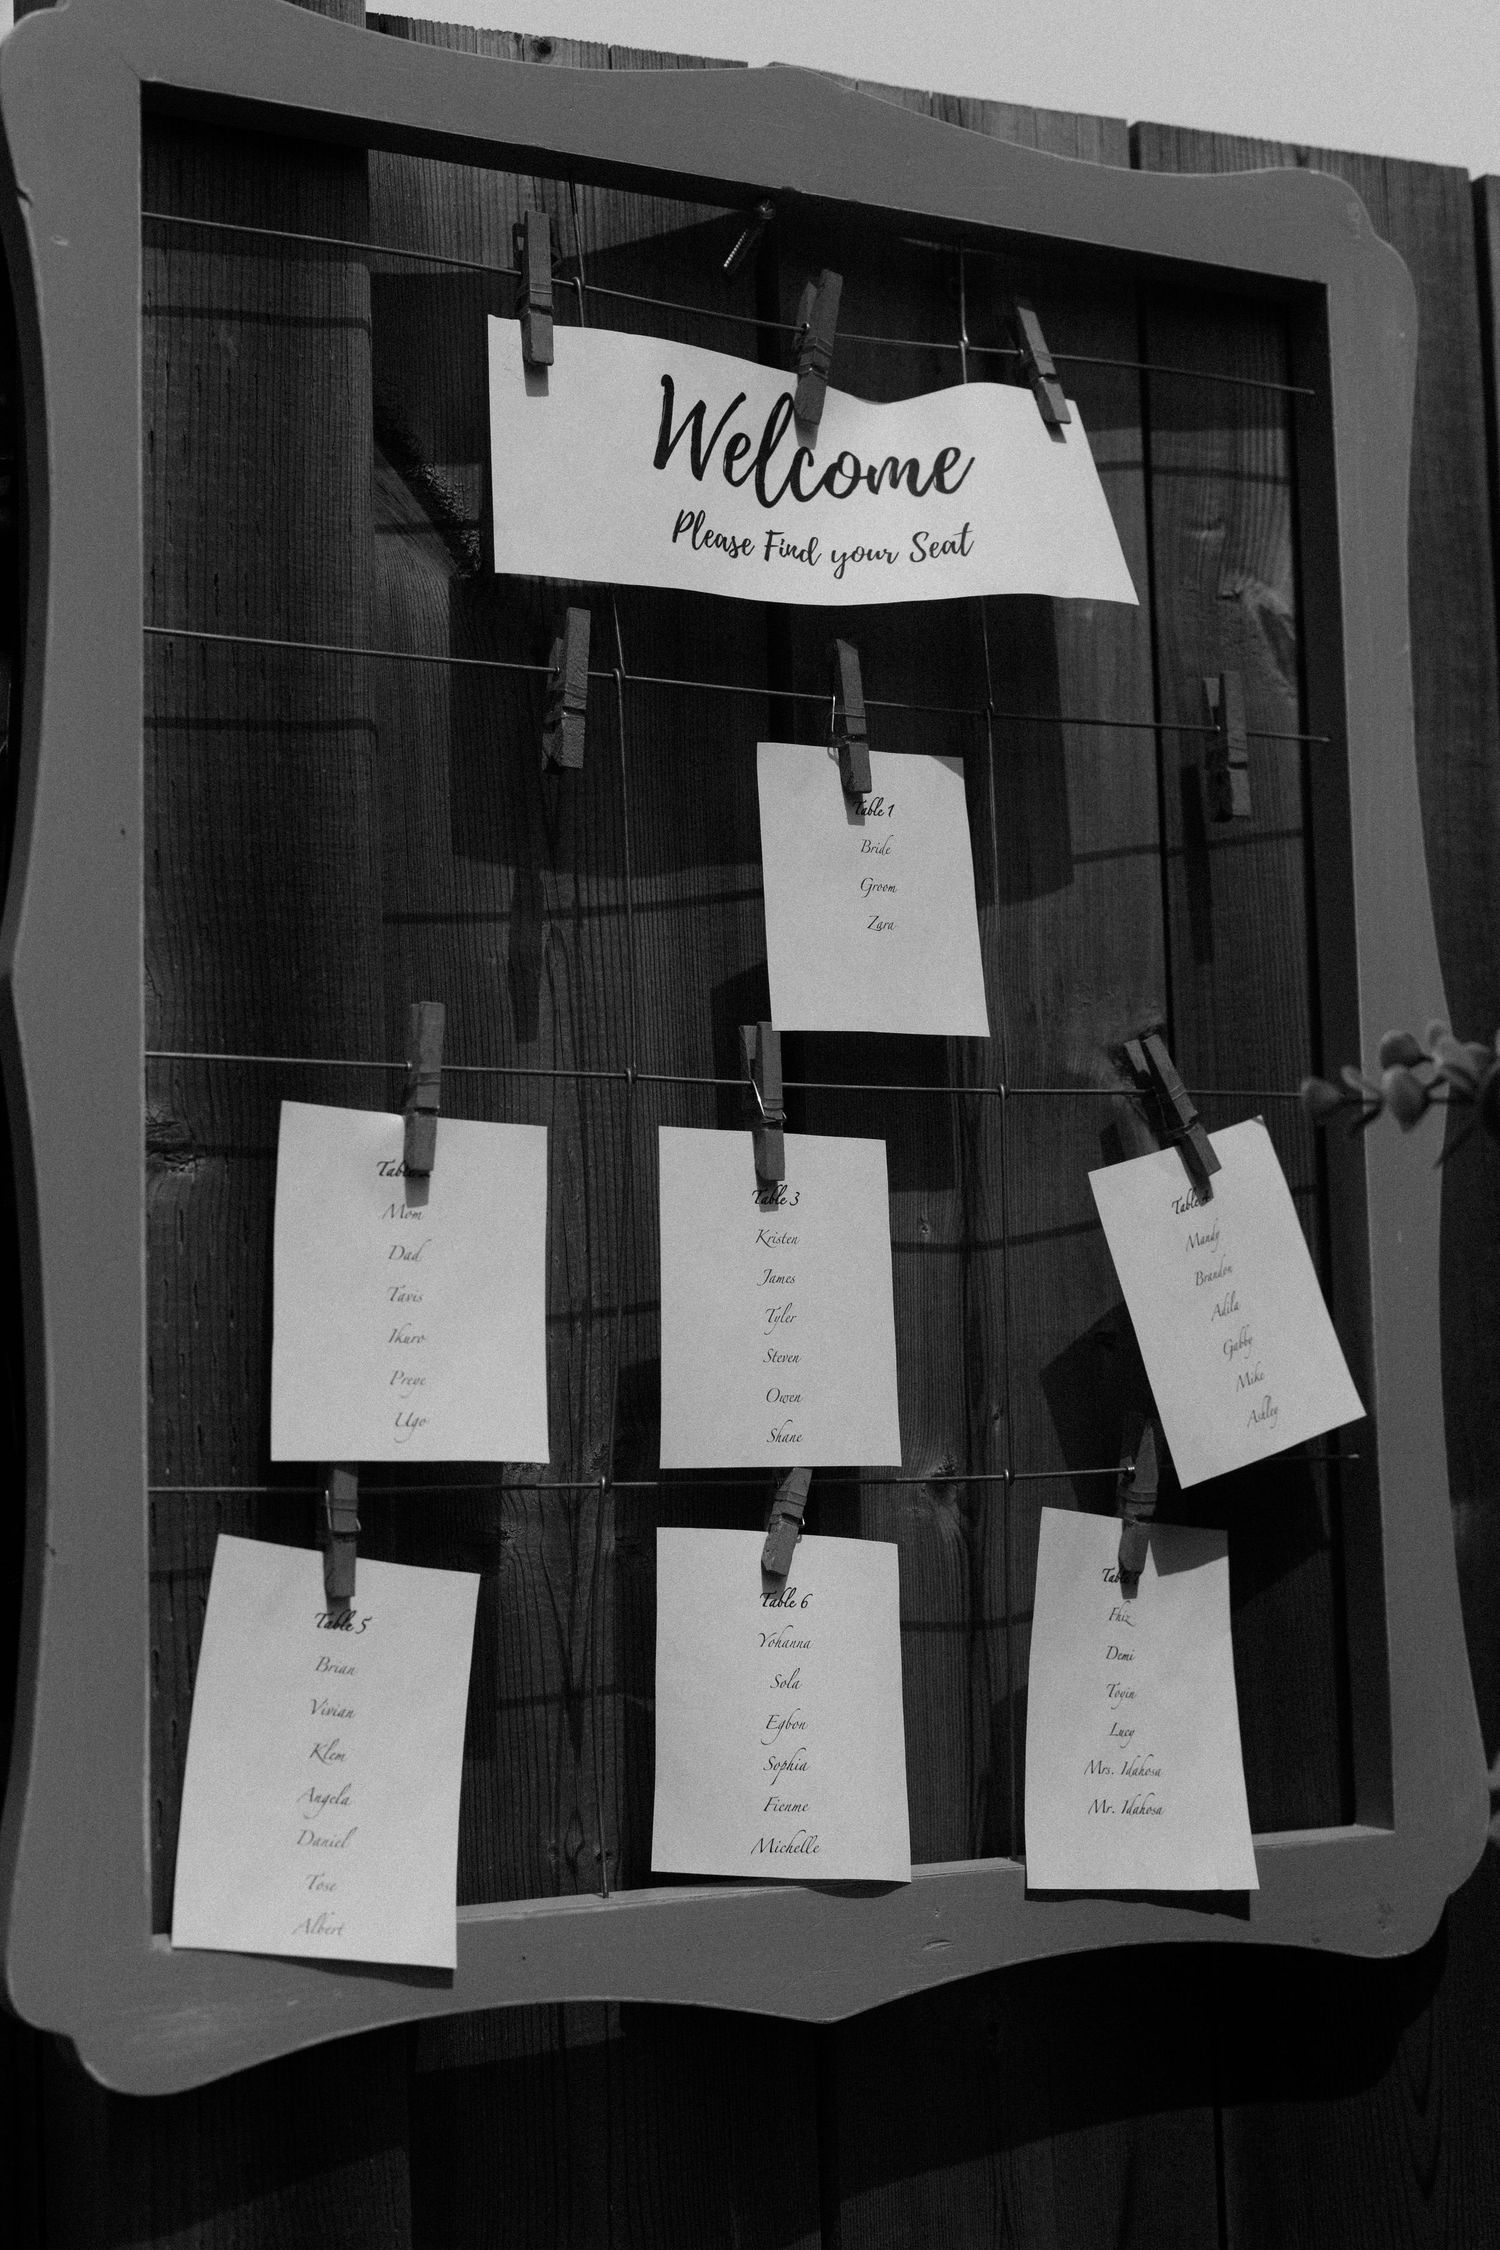 Welcome
Please Find your Seat
Table 1
Bride
Groom
Zara
Table
Mom
Dad
Tavis
Ikuro
Preye
Ugo
Table 3
Kristen
James
Tyler
Steven
Owen
Shane
Table 4
Mandy
Brandon
Adila
Gabby
Mike
Ashley
Table 5
Brian
Vivian
Klem
Angela
Daniel
Tose
Albert
Table 6
Yohanna
Sola
Egbon
Sophia
Fienme
Michelle
Table 7
Fhiz
Demi
Toyin
Lucy
Mrs. Idahosa
Mr. Idahosa